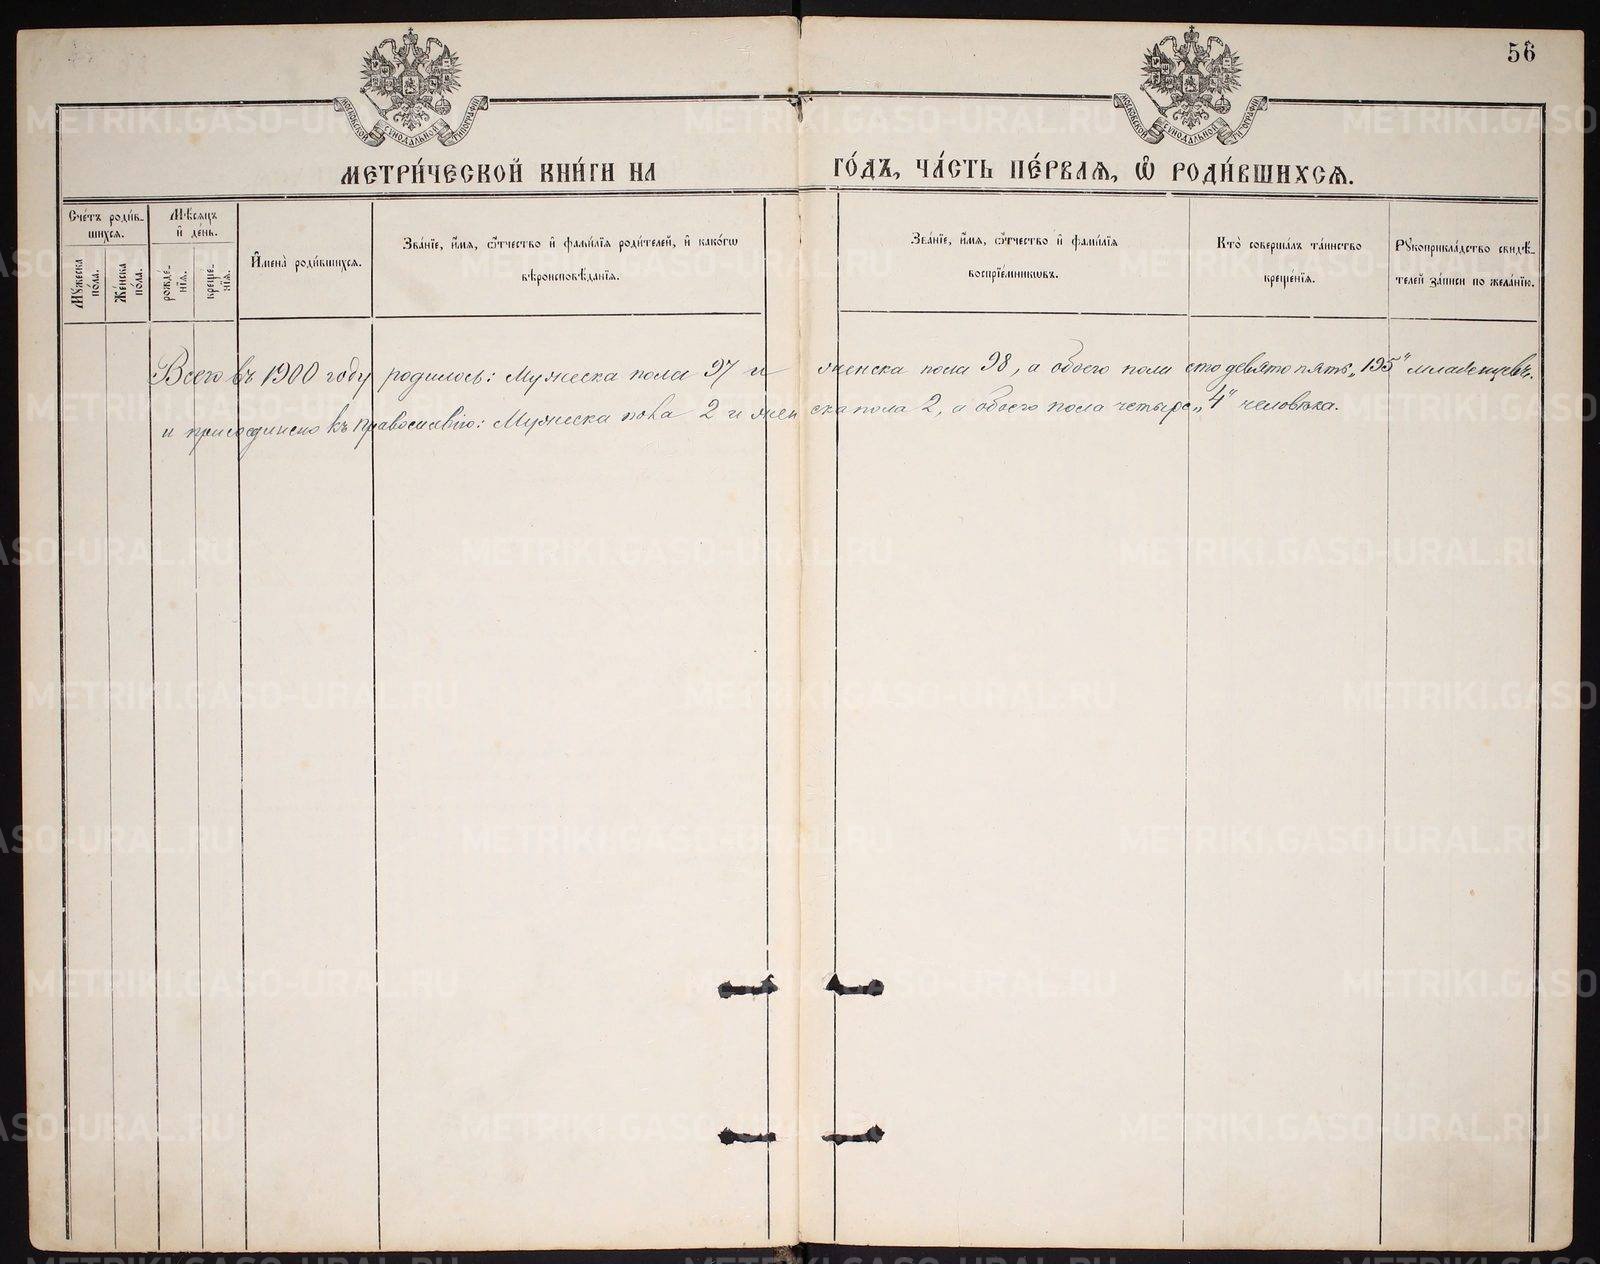 56
МОСКОВСКОЙ СѴНОДАЛЬНОЙ ТИПОГРАФІИ
МОСКОВСКОЙ СѴНОДАЛЬНОЙ ТИПОГРАФІИ
МЕТРИ́ЧЕСКОЙ КНИ́ГИ НА ГО́ДЪ, ЧА́СТЬ ПЕ́РВАѦ, Ѡ РОДИ́ВШИХСѦ.
Сче́тъ роди́в-
шихсѧ.
Мꙋ́жеска по́ла.
Же́нска по́ла.
Мѣ́сѧцъ
и҆ де́нь.
рожде́-
нїѧ.
креще́-
нїѧ.
И҆мена̀ роди́вшихсѧ.
Зва́нїе, и҆́мѧ, ѻ҆́тчество и҆ фамѝлїѧ роди́телей, и҆ како́гѡ
вѣроисповѣ́данїѧ.
Зва́нїе, и҆́мѧ, ѻ҆́тчество и҆ фами́лїѧ
воспрїе́мникѡвъ.
Кто̀ соверша́лъ та́инство
креще́нїѧ.
Рꙋкоприкла́дство свидѣ́-
телей за́писи по жела́нїю.
Всего въ 1900 году родилось: Мужеска пола 97 и женска пола 98, а обоего пола сто девято пять „195“ младенцевъ.
и присоединено къ православію: Мужеска пола 2 и женска пола 2, а обоего пола четыре „4“ человѣка.
METRIKI.GASO-URAL.RU